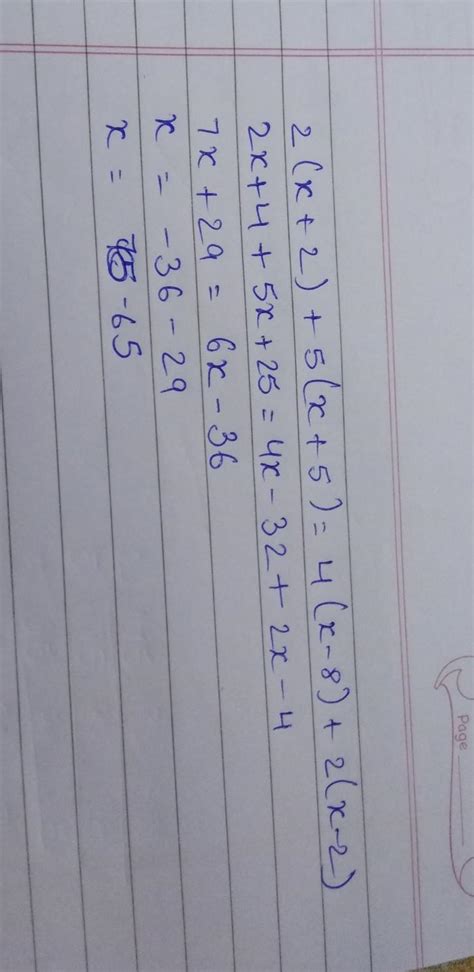 Page
2(x+2)+5(x+5)=4(x-8)+2(x-2)
2x+4+5x+25=4x-32+2x-4
7x+29=6x-36
x=-36-29
x=-65